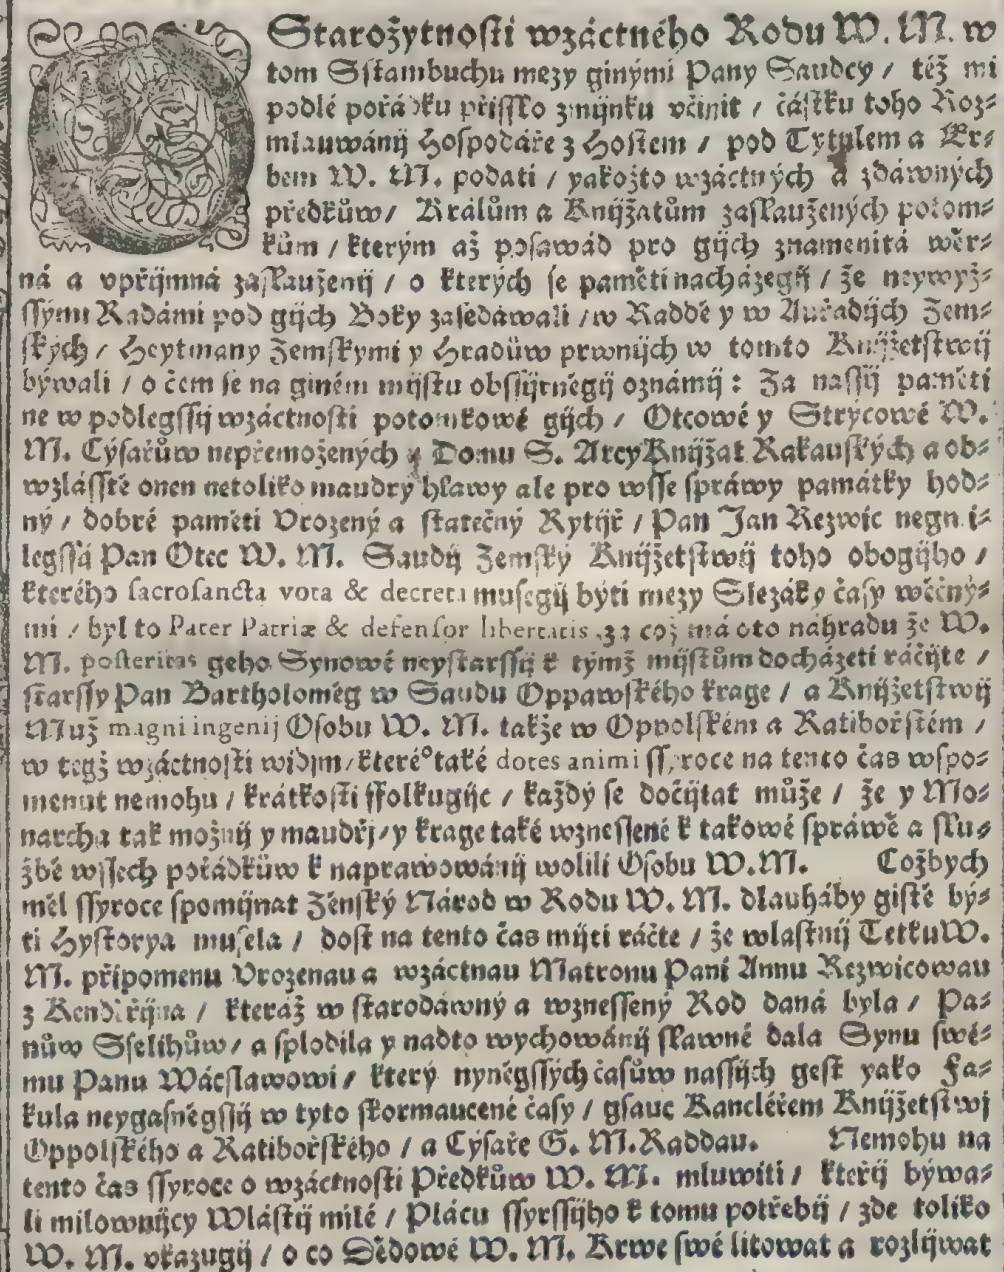 O Starožytnosti wzáctného Rodu W. M. w
tom Sstambuchu mezy ginými Pany Saudcy / též mi
podlé pořádku přissło zmijnku včinit / částku toho Roz=
mlauwánij Hospodáře z Hostem / pod Tytulem a Er=
bem W. M. podati / yakožto wzáctných a zdáwných
předkůw / Králům a Knijžatům zasłaužených potom=
kům / kterým až posawád pro gijch znamenitá wěr=
ná a vpřijmná zasłauženij / o kterých se paměti nacházegij / že neywyž=
ssými Radámi pod gijch Boky zasedáwali / w Raddě y w Auřadijch Zem=
ských / Heytmany Zemskými y Hradůw prwnijch w tomto Knijžetstwij
býwali / o čem se na giném mijstu obssijrněgij oznámij : Za nassij paměti
ne w podlegssij wzáctnosti potomkowé gijch / Otcowé y Strýcowé W.
M. Cýsařůw nepřemožených z Domu S. ArcyKnijžat Rakauských a ob=
wzlásstě onen netoliko maudrý hlawy ale pro wsse spráwy památky hod=
ný / dobré paměti Vrozený a statečný Rytijř / Pan Jan Rezwic negmi=
legssá Pan Otec W. M. Saudij Zemský Knijžetstwij toho obogijho /
kterého sacrosancta vota & decreta musegij býti mezy Slezáky časy wěčný=
mi / byl to Pater Patriæ & defensor libertatis, za což má oto náhradu že W.
M. posteritas geho Synowé neystarssij k týmž mijstům docházeti ráčijte /
starssy Pan Bartholoměg w Saudu Opparwského krage / a Knijžetstwij
Muž magni ingenij Osobu W. M. takže w Oppolském a Ratibořském /
w tegž wzáctnosti widjm / kteréº také dotes animi ssyroce na tento čas wspo=
menut nemohu / krátkosti ffolkugijc / každý se dočijtat může / že y Mo=
narcha tak možnij y maudřj / y krage také wznessené k takowé spráwě a słu=
žbě wssech pořádkůw k naprawowánij wolili Osobu W. M. Cožbych
měl ssyroce spomijnat Ženský Národ w Rodu W. M. dlauháby gistě bý=
ti Hystorya musela / dost na tento čas mijti ráčte / že wlastnij Tetku W.
M. připomenu Vrozenau a wzáctnau Matronu Pani Annu Rezwicowau
z Kendřijna / kteráž w starodáwný a wznessený Rod daná byla / Pa=
nůw Sselihůw / a splodila y nadto wychowánij sławné dala Synu swé=
mu Panu Wácsławowi / který nyněgssých časůw nassijch gest yako Fa=
kula neygasněgssij w tyto skormaucené časy / gsauc Kancléřem Knijžetstwj
Oppolského a Ratibořského / a Cýsaře G. M. Raddau. Nemohu na
tento čas ssyroce o wzáctnosti Předkůw W. M. mluwiti / kteřij býwa=
li milownijcy Wlástij milé / Plácu ssyrssijho k tomu potřebij / zde toliko
W. M. vkazugij / o co Dědowé W. M. Krwe swé litowat a rozlijwat